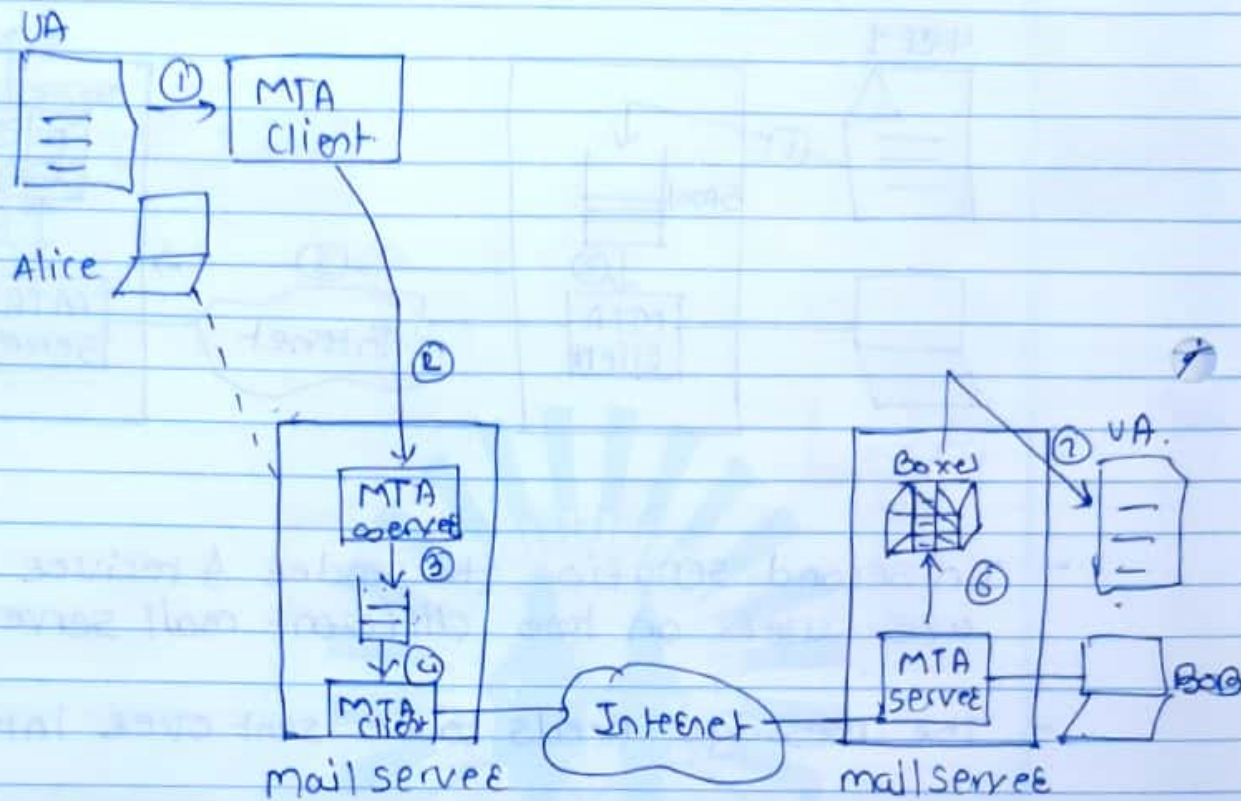 UA
①
MTA
Client
Alice
②
MTA
server
③
④
MTA
client
mail server
Internet
Boxes
⑥
MTA
server
mail server
⑦
UA.
BOB